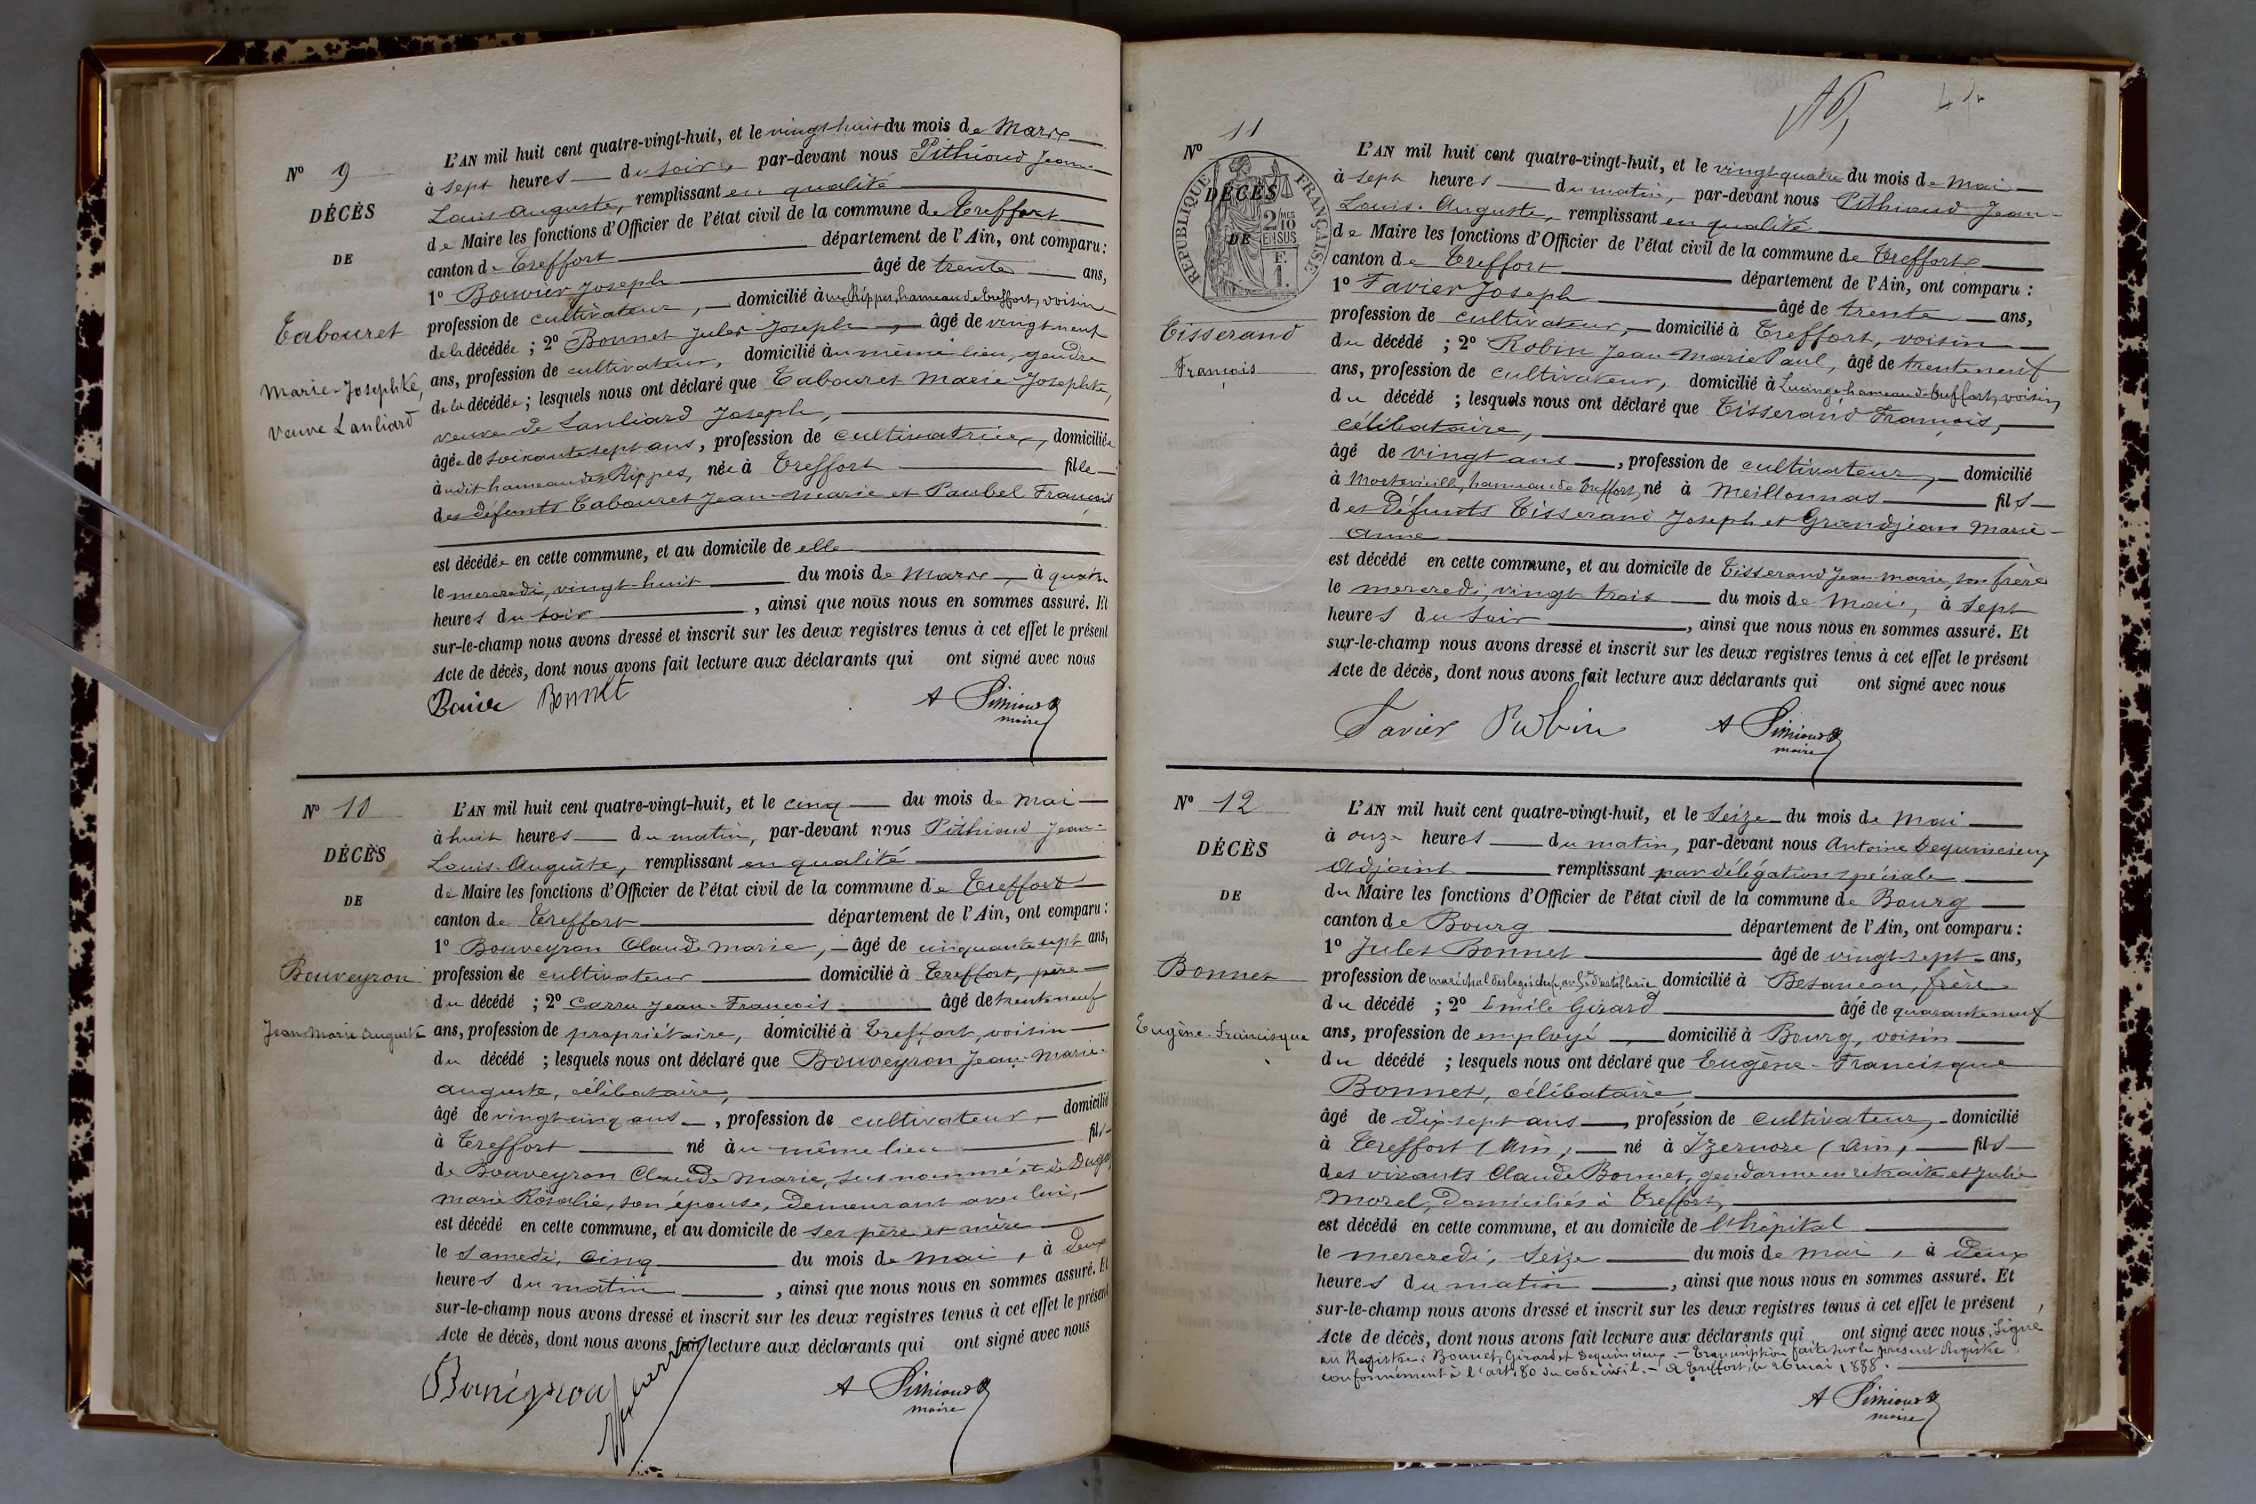 N° 9
DÉCÈS
DE
Tabouret
Marie-Josephte,
veuve Lanliard
L'AN mil huit cent quatre-vingt-huit, et le vingt-huit du mois de Mars
à sept heures du soir, par-devant nous Pithioud Jean-
Louis-Auguste, remplissant en qualité
de Maire les fonctions d'Officier de l'état civil de la commune de Treffort
canton de Treffort département de l'Ain, ont comparu :
1° Bouvier Joseph âgé de trente ans,
profession de cultivateur, domicilié aux Rippes, hameau de Treffort, voisin
de la décédée ; 2° Bonnet Jules Joseph, âgé de vingt neuf
ans, profession de cultivateur, domicilié au même lieu, gendre
de la décédée ; lesquels nous ont déclaré que Tabouret Marie-Josephte,
veuve de Lanliard Joseph,
âgée de soixante sept ans, profession de cultivatrice, domiciliée
au dit hameau des Rippes, née à Treffort fille
des défunts Tabouret Jean-Marie et Paubel François
est décédée en cette commune, et au domicile de elle
le mercredi, vingt-huit du mois de Mars, à quatre
heures du soir, ainsi que nous nous en sommes assuré. Et
sur-le-champ nous avons dressé et inscrit sur les deux registres tenus à cet effet le présent
Acte de décès, dont nous avons fait lecture aux déclarants qui ont signé avec nous
Bonnet A Pithioud
maire
N° 10
DÉCÈS
DE
Bouveyron
Jean-Marie Auguste
L'AN mil huit cent quatre-vingt-huit, et le cinq du mois de Mai
à huit heures du matin, par-devant nous Pithioud Jean-
Louis-Auguste, remplissant en qualité
de Maire les fonctions d'Officier de l'état civil de la commune de Treffort
canton de Treffort département de l'Ain, ont comparu :
1° Bouveyron Claude Marie, âgé de cinquante sept ans,
profession de cultivateur domicilié à Treffort, père
du décédé ; 2° Carru Jean-François âgé de trente-neuf
ans, profession de propriétaire, domicilié à Treffort, voisin
du décédé ; lesquels nous ont déclaré que Bouveyron Jean-Marie-
Auguste, célibataire,
âgé de vingt-cinq ans, profession de cultivateur, domicilié
à Treffort né au même lieu fils
de Bouveyron Claude Marie, sus nommé et de
Marie Rosalie, son épouse, demeurant avec lui,
est décédé en cette commune, et au domicile de ses père et mère
le samedi, cinq du mois de Mai, à deux
heures du matin, ainsi que nous nous en sommes assuré. Et
sur-le-champ nous avons dressé et inscrit sur les deux registres tenus à cet effet le présent
Acte de décès, dont nous avons fait lecture aux déclarants qui ont signé avec nous
A Pithioud
maire
N° 11
RÉPUBLIQUE FRANÇAISE
2/10 EN SUS
F. 1.
DÉCÈS
DE
Tisserand
François
L'AN mil huit cent quatre-vingt-huit, et le vingt quatre du mois de Mai
à sept heures du matin, par-devant nous Pithioud Jean-
Louis-Auguste, remplissant en qualité
de Maire les fonctions d'Officier de l'état civil de la commune de Treffort
canton de Treffort département de l'Ain, ont comparu :
1° Favier Joseph âgé de trente ans,
profession de cultivateur, domicilié à Treffort, voisin
du décédé ; 2° Robin Jean-Marie Paul, âgé de trente neuf
ans, profession de cultivateur, domicilié à Lucinge hameau de Treffort, voisin
du décédé ; lesquels nous ont déclaré que Tisserand François,
célibataire,
âgé de vingt ans, profession de cultivateur, domicilié
à Mortevieille, hameau de Treffort, né à Meillonnas fils
des défunts Tisserand Joseph et Grandjean Marie-
Anne
est décédé en cette commune, et au domicile de Tisserand Jean-Marie, son frère
le mercredi, vingt trois du mois de Mai, à sept
heures du soir, ainsi que nous nous en sommes assuré. Et
sur-le-champ nous avons dressé et inscrit sur les deux registres tenus à cet effet le présent
Acte de décès, dont nous avons fait lecture aux déclarants qui ont signé avec nous
Favier Robin A Pithioud
maire
N° 12
DÉCÈS
DE
Bonnet
Eugène-Francisque
L'AN mil huit cent quatre-vingt-huit, et le Seize du mois de Mai
à onze heures du matin, par-devant nous Antoine Dequincieux
Adjoint remplissant par délégation spéciale
du Maire les fonctions d'Officier de l'état civil de la commune de Bourg
canton de Bourg département de l'Ain, ont comparu :
1° Jules Bonnet âgé de vingt-sept ans,
profession de maréchal des logis chef au d'artillerie domicilié à Besançon, frère
du décédé ; 2° Emile Girard âgé de quarante neuf
ans, profession de employé, domicilié à Bourg, voisin
du décédé ; lesquels nous ont déclaré que Eugène-Francisque
Bonnet, célibataire
âgé de dix-sept ans, profession de cultivateur, domicilié
à Treffort (Ain), né à Izernore (Ain, fils
des vivants Claude Bonnet, gendarme en retraite et Julie
Morel, domiciliés à Treffort,
est décédé en cette commune, et au domicile de l'hôpital
le mercredi, Seize du mois de Mai, à deux
heures du matin, ainsi que nous nous en sommes assuré. Et
sur-le-champ nous avons dressé et inscrit sur les deux registres tenus à cet effet le présent
Acte de décès, dont nous avons fait lecture aux déclarants qui ont signé avec nous. Signé
au Registre : Bonnet, Girard et Dequincieux. – Transcription faite sur le présent Registre
conformément à l'art. 80 du code civil. – A Treffort, le 26 mai 1888.
A Pithioud
maire